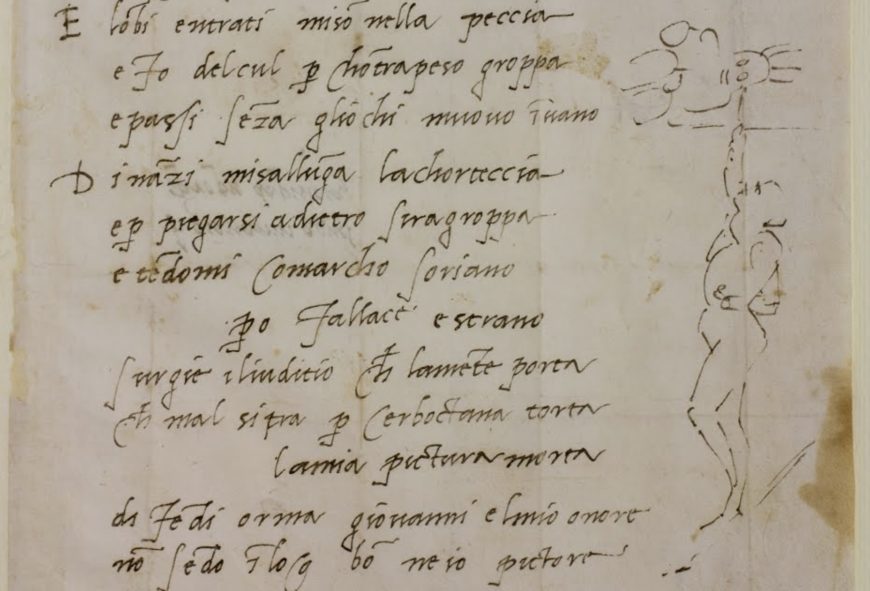 E lōbi entrati misō nella peccia
e fo delcul ꝑ chōtrapeso groppa
epassi seza gliochi muouo īuano
D ināzi misallūga lachorteccia
eꝑ piegarsi adietro siragroppa
e tēdomi comarcho soriano
ꝑo fallace estrano
surgie iliuditio cħ lamēte porta
cħ mal sipra ꝑ cerboctana torta
lamia pictura morta
di fēdi orma giouanni elmio onore
nō sēdo īloco bō ne io pictore